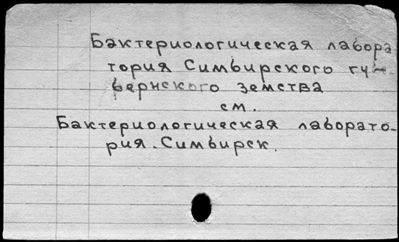 Бактериологическая лабора
тория Симбирского гу-
бернского земства
см.
Бактериологическая лаборато-
рия. Симбирск.